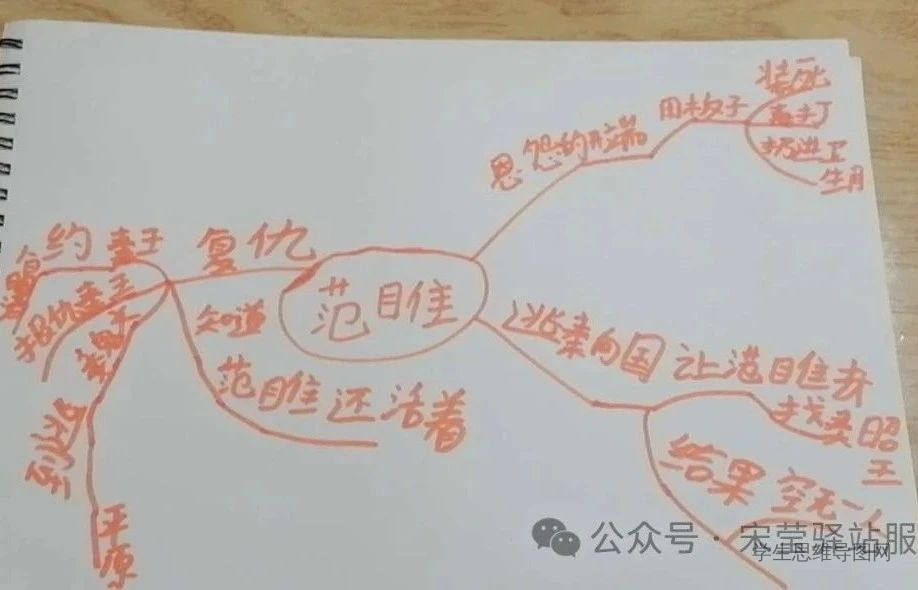 范睢
恩怨的开端
用板子
装死
毒打
扔进卫
生用
逃秦的国
让范睢去
找秦昭
王
结果
空无一人
复仇
知道
范睢还活着
约
报仇
逃到
平原
公众号·宋莹驿站服
学生思维导图网